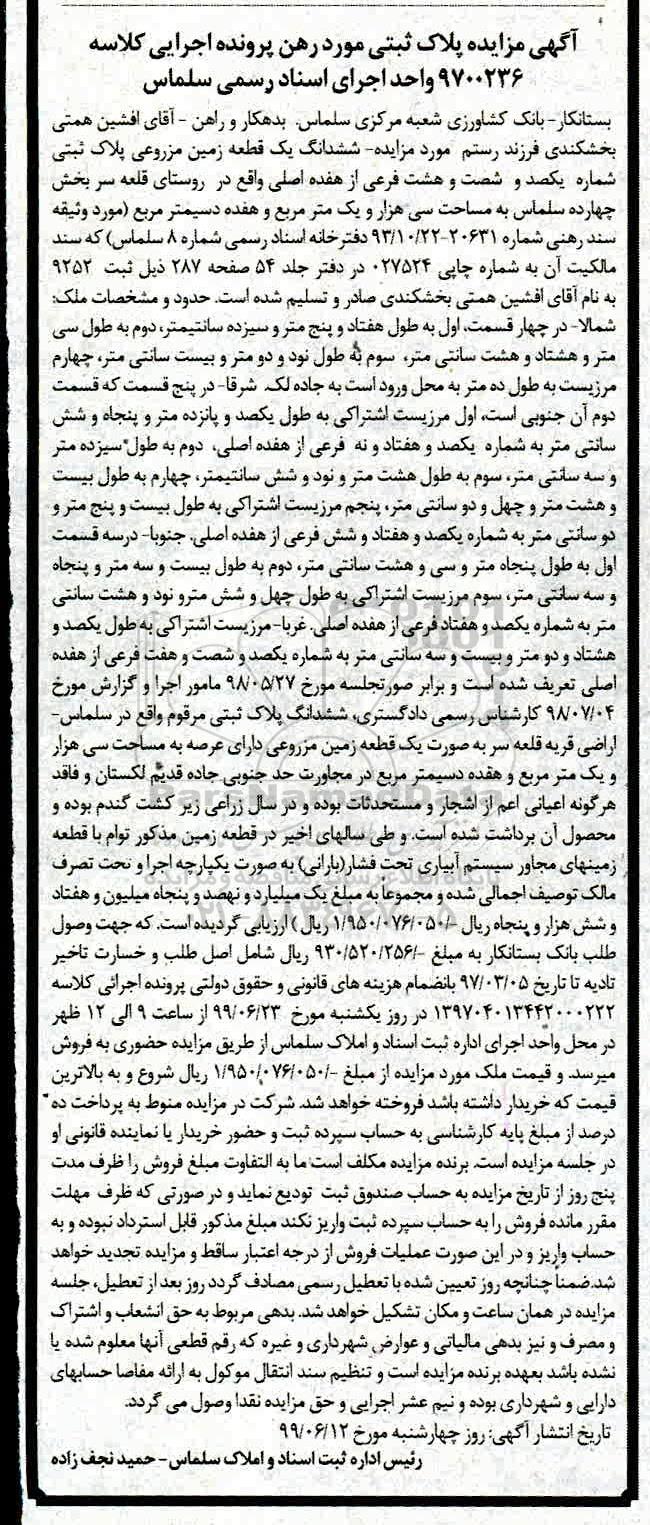 آگهی مزایده پلاک ثبتی مورد رهن پرونده اجرایی کلاسه
۹۷۰۰۲۳۶ واحد اجرای اسناد رسمی سلماس
بستانکار- بانک کشاورزی شعبه مرکزی سلماس. بدهکار و راهن - آقای افشین همتی
بخشکندی فرزند رستم مورد مزایده- ششدانگ یک قطعه زمین مزروعی پلاک ثبتی
شماره یکصد و شصت و هشت فرعی از هفده اصلی واقع در روستای قلعه سر بخش
چهارده سلماس به مساحت سی هزار و یک متر مربع و هفده دسیمتر مربع (مورد وثیقه
سند رهنی شماره ۲۰۶۳۱-۹۳/۱۰/۲۲ دفترخانه اسناد رسمی شماره ۸ سلماس) که سند
مالکیت آن به شماره چاپی ۰۲۷۵۲۴ در دفتر جلد ۵۴ صفحه ۲۸۷ ذیل ثبت ۹۲۵۲
به نام آقای افشین همتی بخشکندی صادر و تسلیم شده است. حدود و مشخصات ملک:
شمالا- در چهار قسمت، اول به طول هفتاد و پنج متر و سیزده سانتیمتر، دوم به طول سی
متر و هشتاد و هشت سانتی متر، سوم به طول نود و دو متر و بیست سانتی متر، چهارم
مرزیست به طول ده متر به محل ورود است به جاده لک. شرقا- در پنج قسمت که قسمت
دوم آن جنوبی است، اول مرزیست اشتراکی به طول یکصد و پانزده متر و پنجاه و شش
سانتی متر به شماره یکصد و هفتاد و نه فرعی از هفده اصلی، دوم به طول سیزده متر
و سه سانتی متر، سوم به طول هشت متر و نود و شش سانتیمتر، چهارم به طول بیست
و هشت متر و چهل و دو سانتی متر، پنجم مرزیست اشتراکی به طول بیست و پنج متر و
دو سانتی متر به شماره یکصد و هفتاد و شش فرعی از هفده اصلی. جنوبا- درسه قسمت
اول به طول پنجاه متر و سی و هشت سانتی متر، دوم به طول بیست و سه متر و پنجاه
و سه سانتی متر، سوم مرزیست اشتراکی به طول چهل و شش مترو نود و هشت سانتی
متر به شماره یکصد و هفتاد فرعی از هفده اصلی. غربا- مرزیست اشتراکی به طول یکصد و
هشتاد و دو متر و بیست و سه سانتی متر به شماره یکصد و شصت و هفت فرعی از هفده
اصلی تعریف شده است و برابر صورتجلسه مورخ ۹۸/۰۵/۲۷ مامور اجرا و گزارش مورخ
۹۸/۰۷/۰۴ کارشناس رسمی دادگستری، ششدانگ پلاک ثبتی مرقوم واقع در سلماس-
اراضی قریه قلعه سر به صورت یک قطعه زمین مزروعی دارای عرصه به مساحت سی هزار
و یک متر مربع و هفده دسیمتر مربع در مجاورت حد جنوبی جاده قدیم لکستان و فاقد
هرگونه اعیانی اعم از اشجار و مستحدثات بوده و در سال زراعی زیر کشت گندم بوده و
محصول آن برداشت شده است. و طی سالهای اخیر در قطعه زمین مذکور توام با قطعه
زمینهای مجاور سیستم آبیاری تحت فشار(بارانی) به صورت یکپارچه اجرا و تحت تصرف
مالک توصیف اجمالی شده و مجموعا به مبلغ یک میلیارد و نهصد و پنجاه میلیون و هفتاد
و شش هزار و پنجاه ریال -/۱/۹۵۰/۰۷۶/۰۵۰ ریال ) ارزیابی گردیده است. که جهت وصول
طلب بانک بستانکار به مبلغ -/۹۳۰/۵۲۰/۲۵۶ ریال شامل اصل طلب و خسارت تاخیر
تادیه تا تاریخ ۹۷/۰۳/۰۵ بانضمام هزینه های قانونی و حقوق دولتی پرونده اجرائی کلاسه
۱۳۹۷۰۴۰۱۳۴۴۲۰۰۰۲۲۲ در روز یکشنبه مورخ ۹۹/۰۶/۲۳ از ساعت ۹ الی ۱۲ ظهر
در محل واحد اجرای اداره ثبت اسناد و املاک سلماس از طریق مزایده حضوری به فروش
میرسد. و قیمت ملک مورد مزایده از مبلغ -/۱/۹۵۰/۰۷۶/۰۵۰ ریال شروع و به بالاترین
قیمت که خریدار داشته باشد فروخته خواهد شد. شرکت در مزایده منوط به پرداخت ده
درصد از مبلغ پایه کارشناسی به حساب سپرده ثبت و حضور خریدار یا نماینده قانونی او
در جلسه مزایده است. برنده مزایده مکلف است ما به التفاوت مبلغ فروش را ظرف مدت
پنج روز از تاریخ مزایده به حساب صندوق ثبت تودیع نماید و در صورتی که ظرف مهلت
مقرر مانده فروش را به حساب سپرده ثبت واریز نکند مبلغ مذکور قابل استرداد نبوده و به
حساب واریز و در این صورت عملیات فروش از درجه اعتبار ساقط و مزایده تجدید خواهد
شد.ضمنا چنانچه روز تعیین شده با تعطیل رسمی مصادف گردد روز بعد از تعطیل، جلسه
مزایده در همان ساعت و مکان تشکیل خواهد شد. بدهی مربوط به حق انشعاب و اشتراک
و مصرف و نیز بدهی مالیاتی و عوارض شهرداری و غیره که رقم قطعی آنها معلوم شده یا
نشده باشد بعهده برنده مزایده است و تنظیم سند انتقال موکول به ارائه مفاصا حسابهای
دارایی و شهرداری بوده و نیم عشر اجرایی و حق مزایده نقدا وصول می گردد.
تاریخ انتشار آگهی: روز چهارشنبه مورخ ۹۹/۰۶/۱۲
رئیس اداره ثبت اسناد و املاک سلماس - حمید نجف زاده